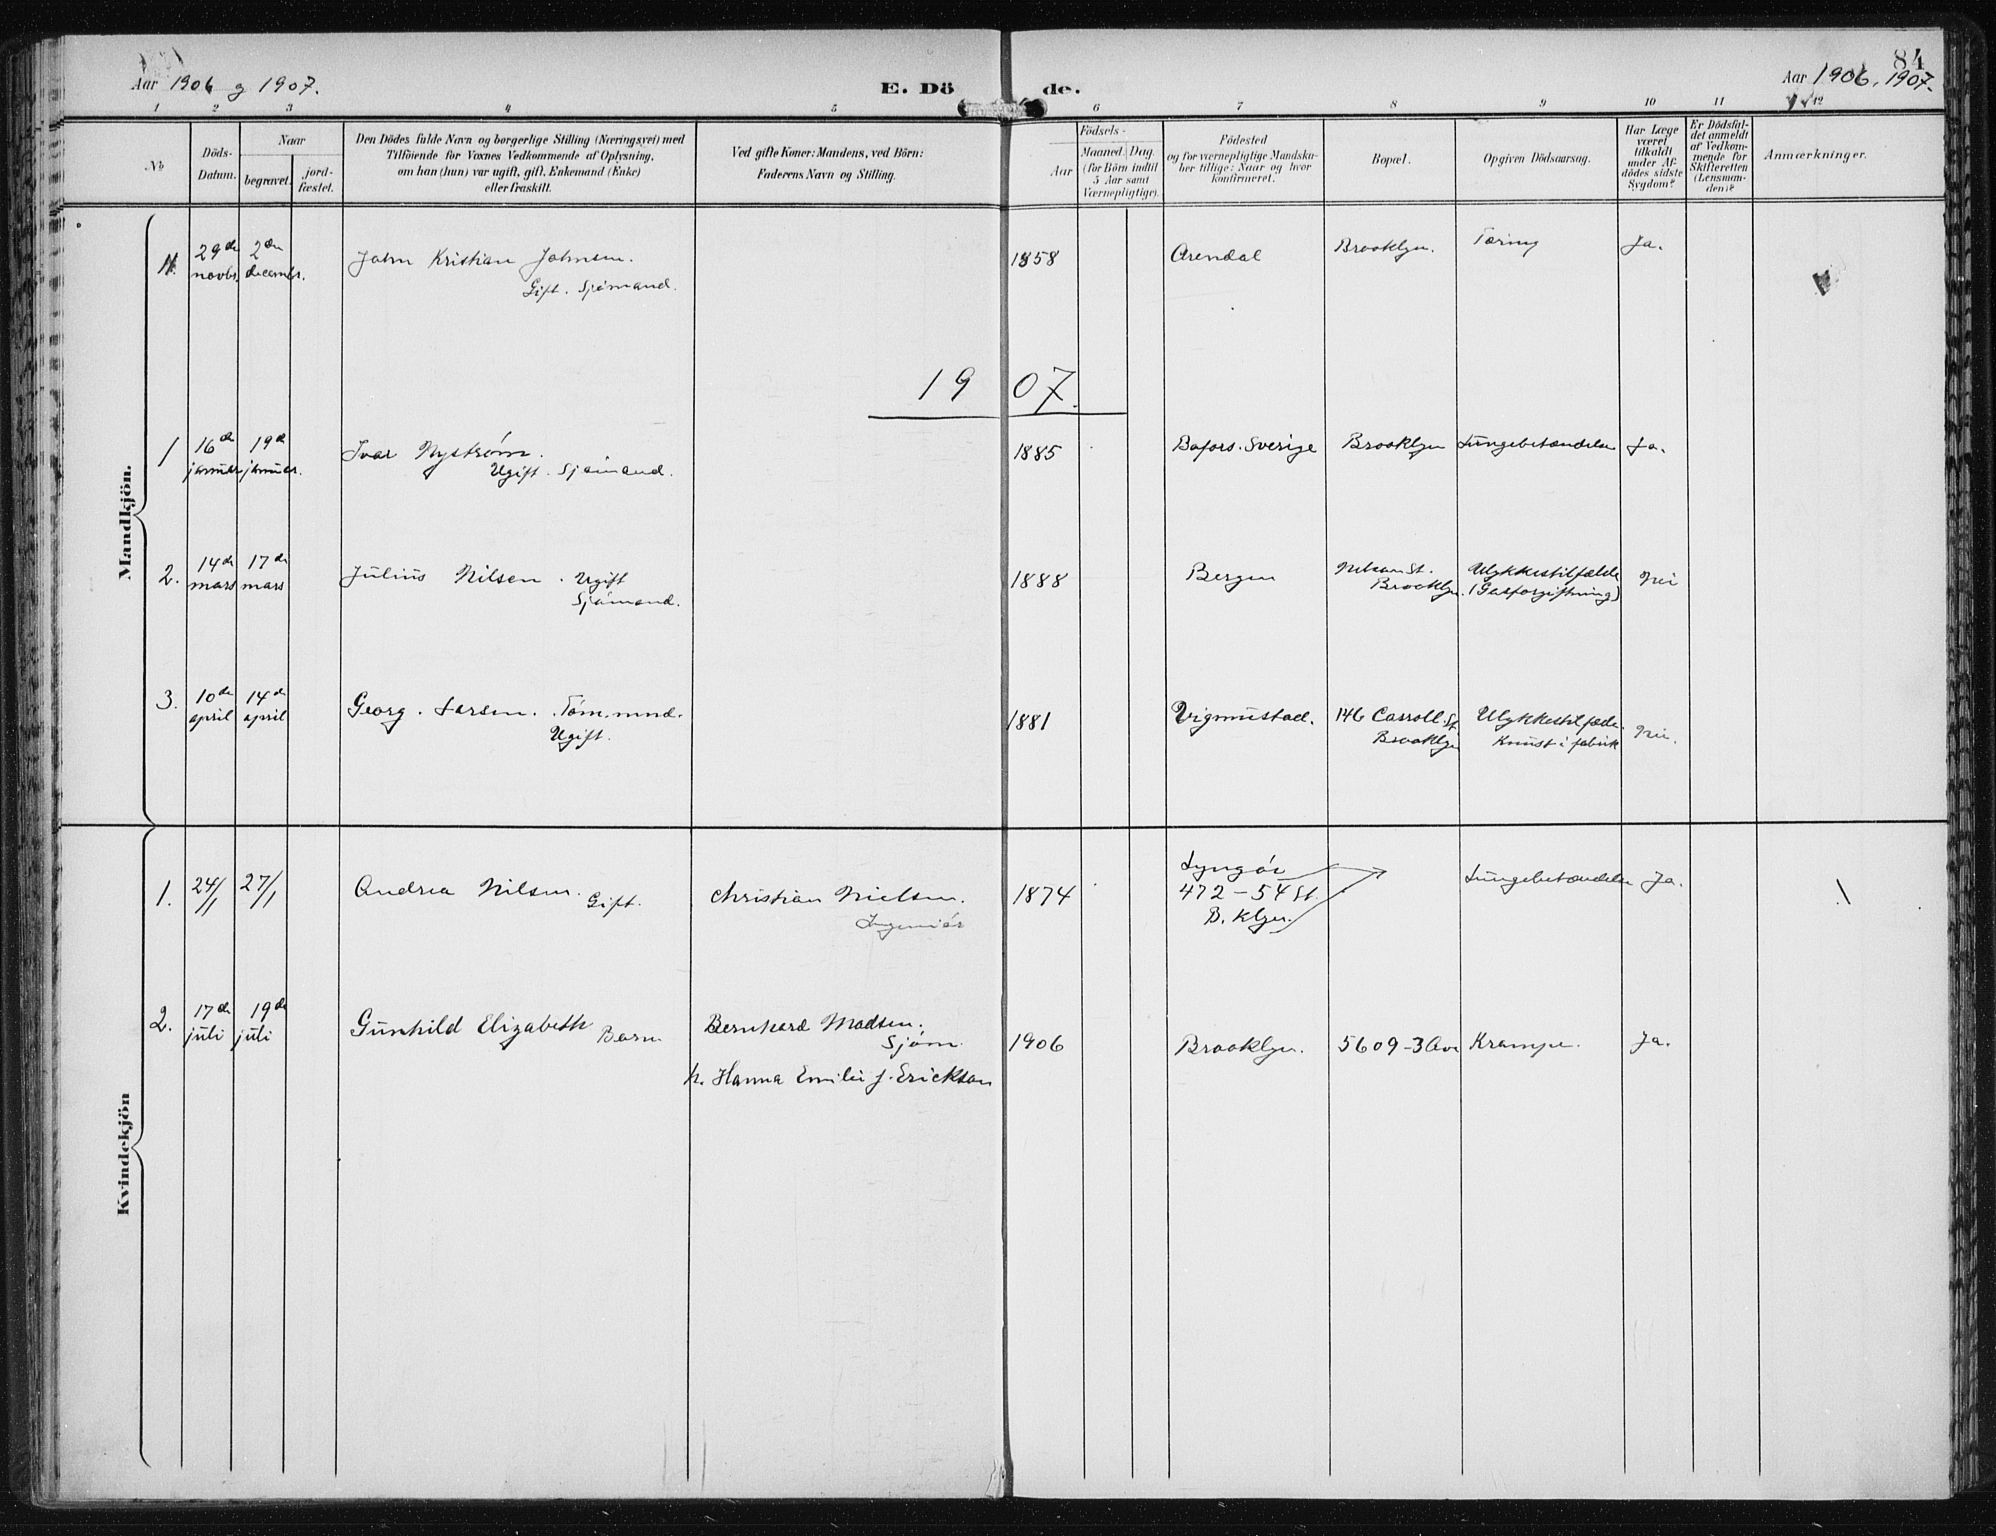 84
Aar 1906 og 1907.
E. Dö
de.
Aar 1906. 1907.
1 2 3 4 5 6 7 8 9 10 11 12
No
Döds-
Datum.
Naar
begravet.
jord-
fæstet.
Den Dödes fulde Navn og borgerlige Stilling (Næringsvei) med
Tilföiende for Voxnes Vedkommende af Oplysning,
om han (hun) var ugift, gift, Enkemand (Enke)
eller fraskilt.
Ved gifte Koner: Mandens, ved Börn:
Faderens Navn og Stilling.
Födsels-
Aar
Maaned. Dag.
(for Börn indtil
5 Aar samt
Værnepligtige).
Födested
og for værnepligtige Mandska-
ber tillige: Naar og hvor
konfirmeret.
Bopæl.
Opgiven Dödsaarsag.
Har Læge
været
tilkaldt
under Af-
dödes sidste
Sygdom?
Er Dödsfal-
det anmeldt
af Vedkom-
mende for
Skifteretten
(Lensman-
den)?
Anmærkninger.
Mandkjön.
11. 29de novbr. 2den decembr. John Kristian Johnsen. 1858 Arendal Brooklyn. Tæring Ja.
Gift. Sjömand.
1907.
1 16de januar 19de januar. Ivar Nyström. 1885 Bofors. Sverige Brooklyn Lungebetændelse Ja.
Ugift. Sjömand.
2. 14de mars 17de mars Julius Nilsen. Ugift 1888 Bergen Nelson St. Ulykkestilfælde Nei
Sjömand. Brooklyn. (Gasforgiftning)
3. 10de april 14de april Georg. Larsen. Tömmmd. 1881 Vigmustad. 146 Carroll St. Ulykkestilfælde. Nei.
Ugift. Brooklyn Knust i fabrik
Kvindekjön
1. 24/1 27/1 Andrea Nilsen. Gift. Christian Nielsen. 1874 Lyngör Lungebetændelse Ja.
Ingeniör
472 - 54 St.
B. klyn.
2. 17de juli 19de juli Gunhild Elizabeth Barn Bernhard Madsen. 1906 Brooklyn. 5609 - 3 Ave Krampe. Ja.
Sjöm.
h. Hanna Emilie f. Erickson